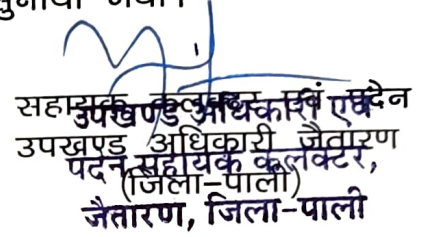 सुनाया गया।
सहायक कलक्टर एवं पदेन
उपखण्ड अधिकारी एवं
उपखण्ड अधिकारी जैतारण
पदेन सहायक कलेक्टर,
(जिला-पाली)
जैतारण, जिला-पाली